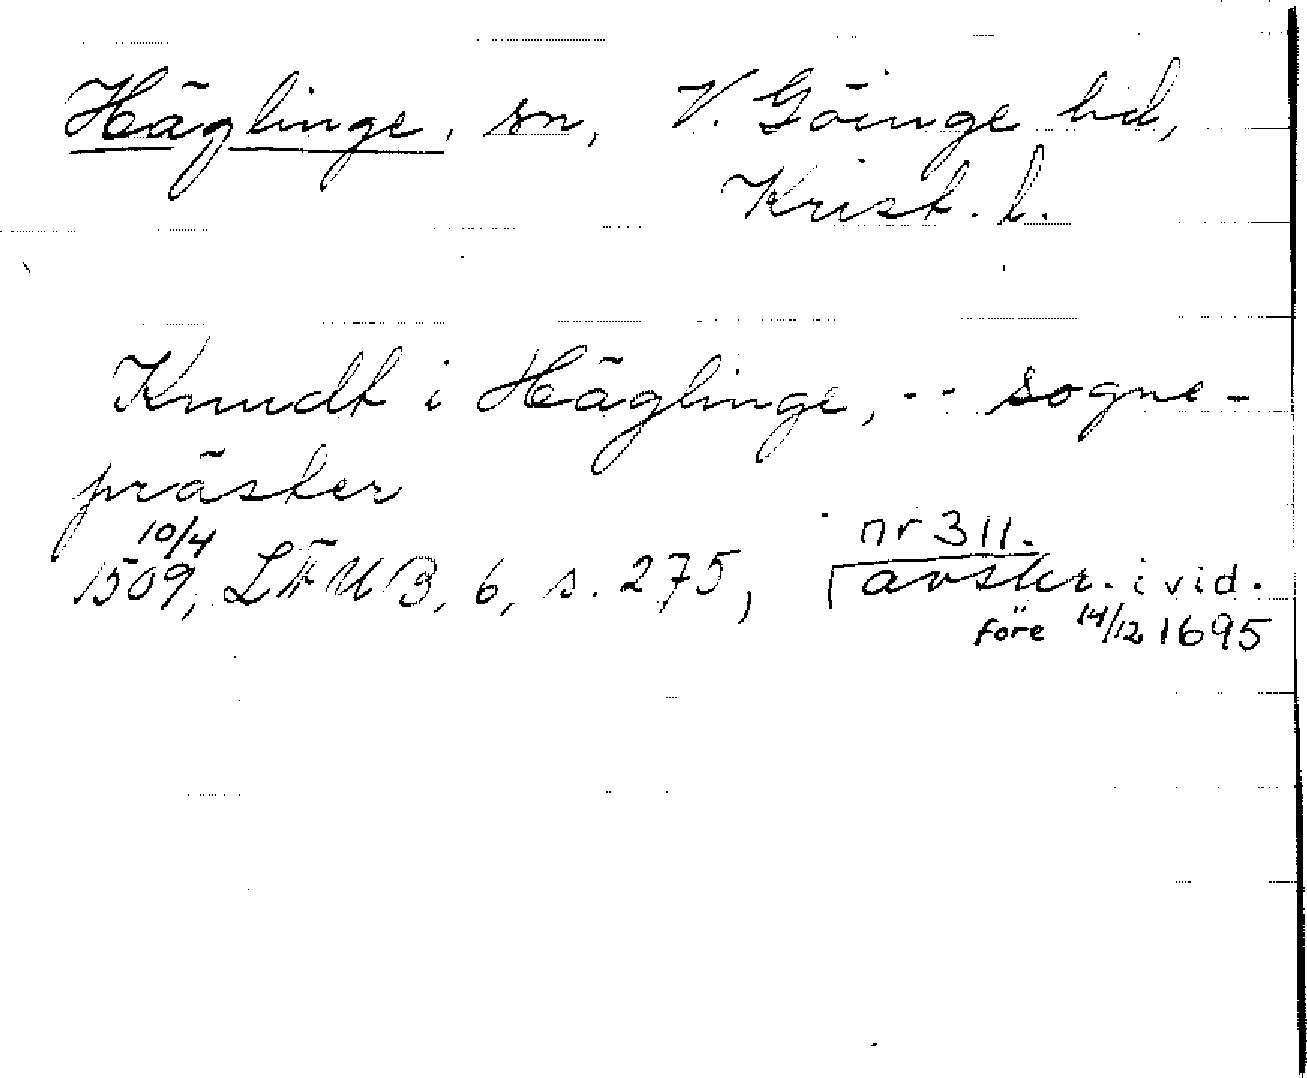 Häglinge, sn, V. Göinge hd,
Krist. l.
Knudt i Häglinge, -- sogne-
präster
10/4
1509, LÆUB, 6, s. 275, nr 311.
avskr. i vid.
före 14/12 1695